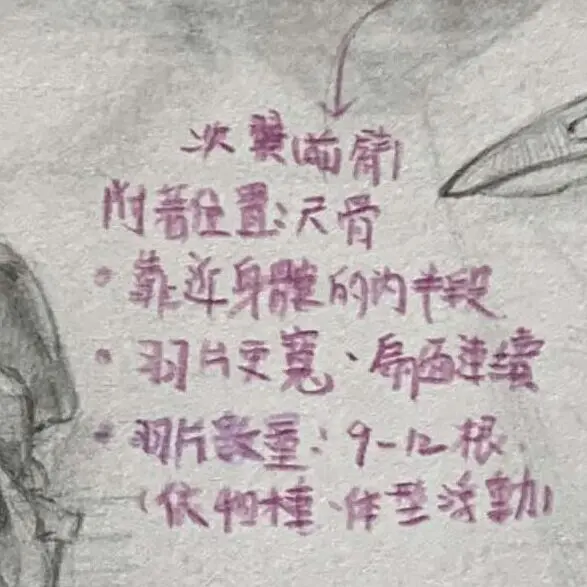 次翼(前臂)
附著位置:尺骨
• 靠近身體的內半段
• 羽片更寬、扇面連續
• 羽片數量: 9-12根
(依物種、体型浮動)